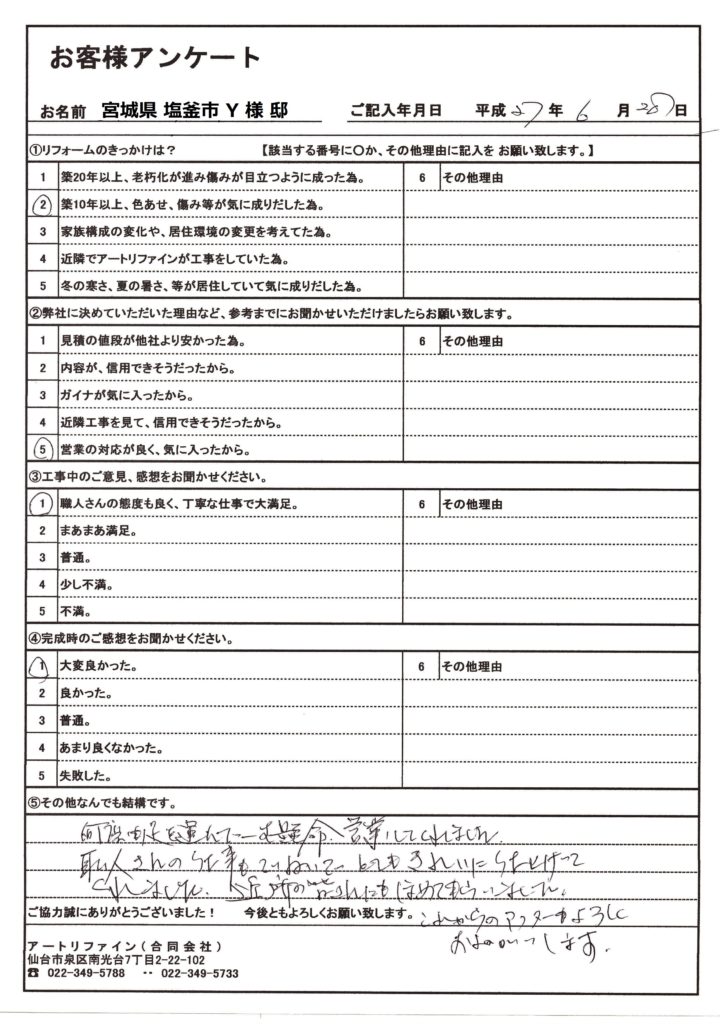 お客様アンケート
お名前 宮城県 塩釜市 Y 様 邸 ご記入年月日 平成 27 年 6 月 28 日
①リフォームのきっかけは？ 【該当する番号に〇か、その他理由に記入を お願い致します。】
1 築20年以上、老朽化が進み傷みが目立つように成った為。 6 その他理由
2 築10年以上、色あせ、傷み等が気に成りだした為。
3 家族構成の変化や、居住環境の変更を考えてた為。
4 近隣でアートリファインが工事をしていた為。
5 冬の寒さ、夏の暑さ、等が居住していて気に成りだした為。
②弊社に決めていただいた理由など、参考までにお聞かせいただけましたらお願い致します。
1 見積の値段が他社より安かった為。 6 その他理由
2 内容が、信用できそうだったから。
3 ガイナが気に入ったから。
4 近隣工事を見て、信用できそうだったから。
5 営業の対応が良く、気に入ったから。
③工事中のご意見、感想をお聞かせください。
1 職人さんの態度も良く、丁寧な仕事で大満足。 6 その他理由
2 まあまあ満足。
3 普通。
4 少し不満。
5 不満。
④完成時のご感想をお聞かせください。
1 大変良かった。 6 その他理由
2 良かった。
3 普通。
4 あまり良くなかった。
5 失敗した。
⑤その他なんでも結構です。
何度も足を運んで一生懸命、営業してくれました。
職人さんの仕事もていねいで とてもきれいに仕上げて
くれました。近所の皆さんにもほめてもらいました。
ご協力誠にありがとうございました！ 今後ともよろしくお願い致します。
これからのアフターもよろしく
おねがいします。
アートリファイン（合同会社）
仙台市泉区南光台7丁目2-22-102
☎ 022-349-5788 ·· 022-349-5733